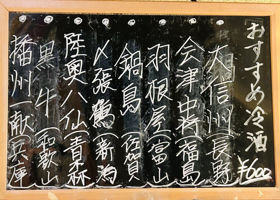 おすすめ冷酒
¥600
大信州(長野)
会津中将(福島)
羽根屋(富山)
鍋島(佐賀)
〆張鶴(新潟)
陸奥八仙(青森)
黒牛(和歌山)
播州一献(兵庫)